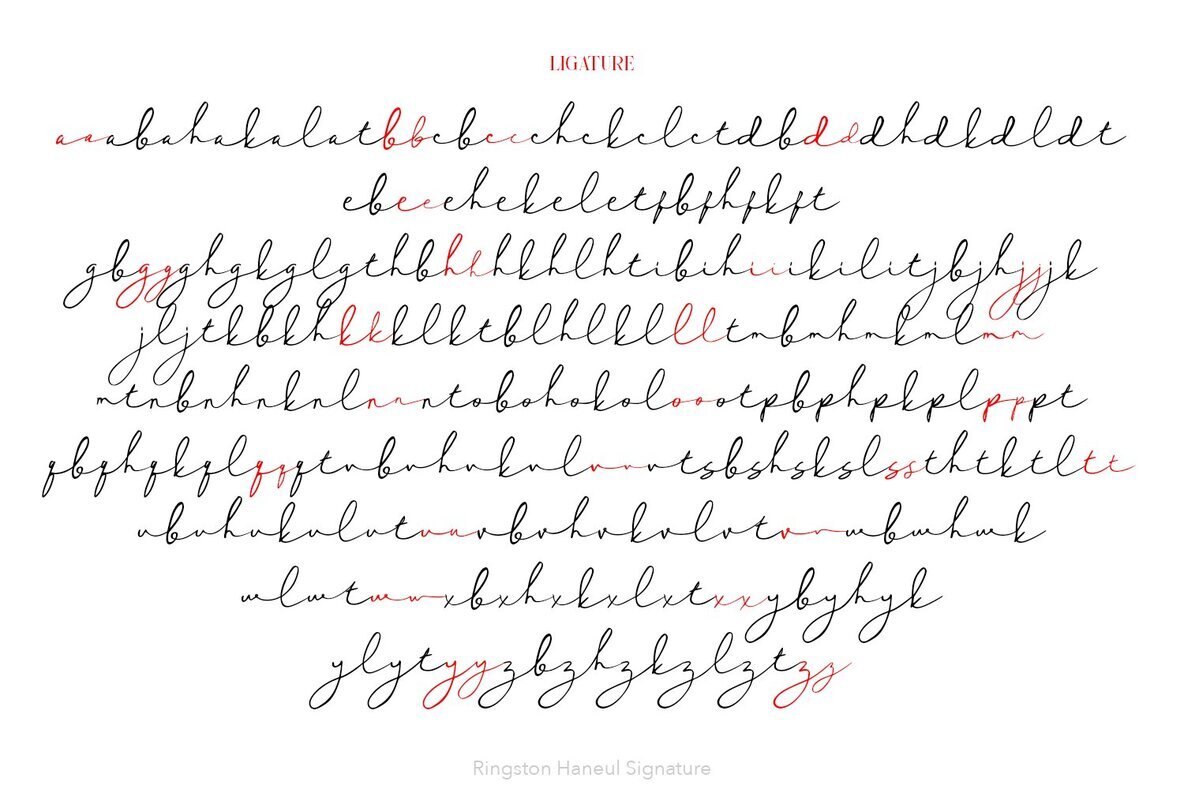 LIGATURE
aaabahakalatbbcbccchckclctdbdddhdkdldt
ebeeehekeletfbfhfkft
gbggghgkglgthbhhhkhlhtibihiiikilitjbjhjjjk
jljtkbkhkkklktblhlkllltmbmhmkmlmm
mtnbnhnknlnnntobohokoloootpbphpkplpppt
qbqhqkqlqqqtrbrhrkrlrrrtsbshskslssthtktltt
ubuhukulutuuvbvhvkvlvtvvwbwhwk
wlwtwwxbxhxkxlxtxxybyhyk
ylytyyzbzhzkzlztzz
Ringston Haneul Signature